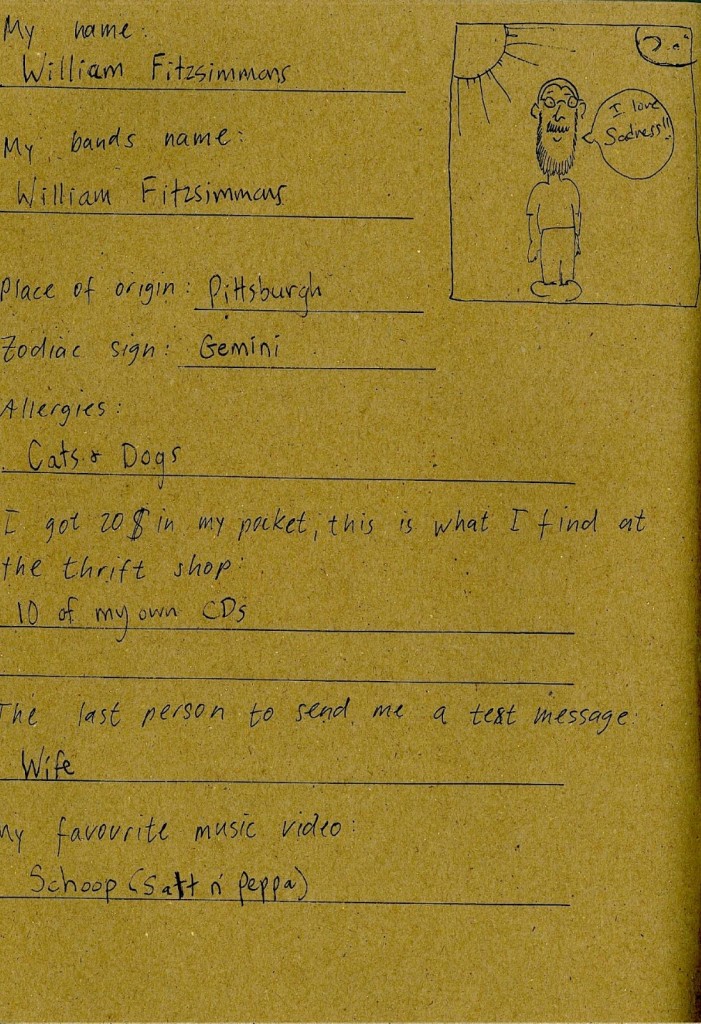 My name:
William Fitzsimmons
My bands name:
William Fitzsimmons
I love
Sadness!!
Place of origin: Pittsburgh
Zodiac sign: Gemini
Allergies:
Cats & Dogs
I got 20$ in my pocket, this is what I find at
the thrift shop:
10 of my own CDs
The last person to send me a text message:
Wife
My favourite music video:
Schoop (Salt n' Peppa)